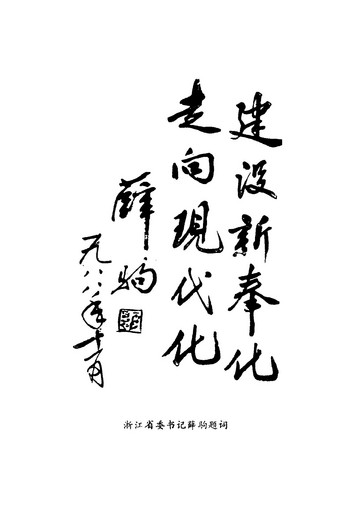 建设新奉化
走向現代化
薛驹
一九八八年十月
浙江省委书记薛驹题词